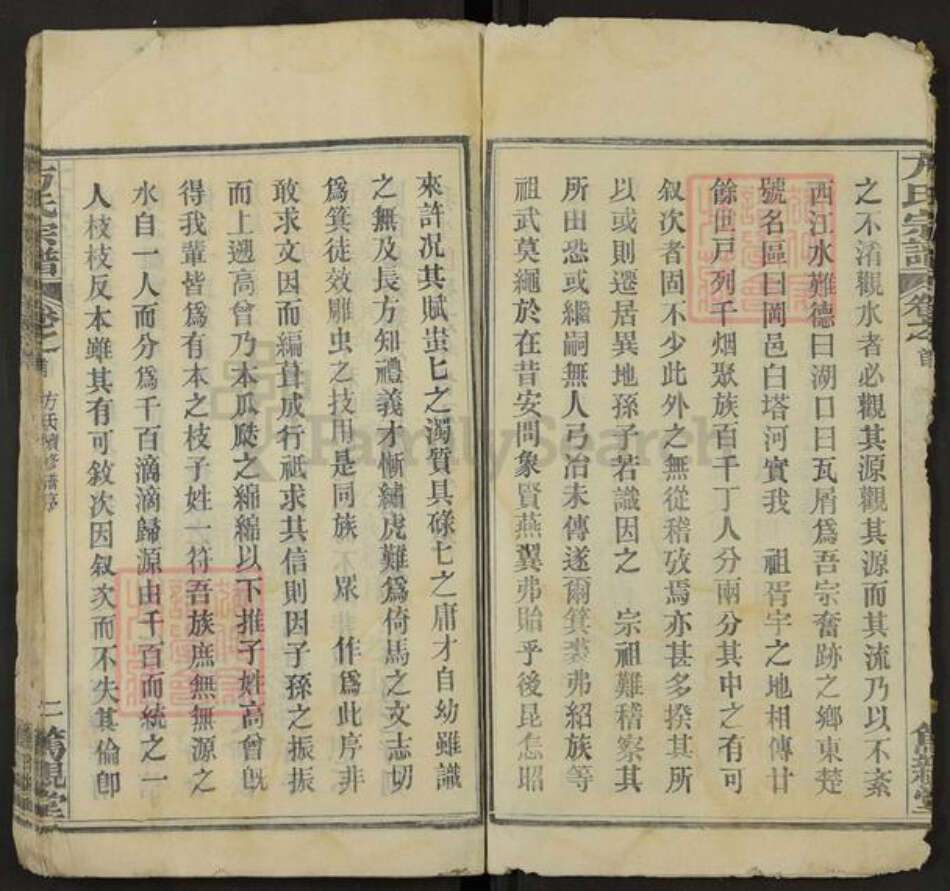 之不淆觀水者必觀其源觀其源而其流乃以不紊
西江水難德曰湖口曰瓦屑爲吾宗奮跡之鄉東楚
號名區曰岡邑白塔河實我 祖胥宇之地相傳廿
餘世戸列千烟聚族百千丁人分兩分其中之有可
叙次者固不少此外之無從稽攷焉亦甚多揆其所
以或則遷居異地孫子若識因之 宗祖難稽察其
所由恐或繼嗣無人弓冶未傳遂爾箕裘弗紹族等
祖武莫繩於在昔安問象賢燕翼弗貽乎後昆怎昭
來許況其賦蚩匕之濁質具碌匕之庸才自幼雖識
之無及長方知禮義才慚繡虎難爲倚馬之文志切
爲箕徒效雕虫之技用是同族 眾 作爲此序非
敢求文因而編葺成行祇求其信則因子孫之振振
而上遡高曾乃本瓜瓞之綿綿以下推子姓高曾旣
得我輩皆爲有本之枝子姓一符吾族庶無無源之
水自一人而分爲千百滴滴歸源由千百而統之一
人枝枝反本雖其有可敘次因叙次而不失其倫卽
方氏宗譜 卷之首 方氏續修譜序 二 篤親堂
FamilySearch